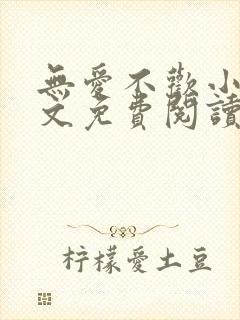 無愛不歡小
文免費閱讀
柠檬愛土豆